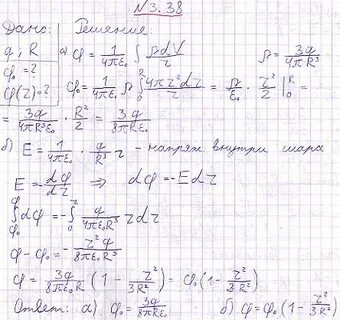 №3.38
Дано: Решение:
q, R а) φ = 1/4πε₀ ∫ ρdV/r ρ = 3q/4πR³
φ₀ = ? φ₀ = 1/4πε₀ ρ∫₀ᴿ 4πr²dr/r = ρ/ε₀ · r²/2 |₀ᴿ =
φ(r) = ?
= 3q/4πR³ε₀ · R²/2 = 3q/8πRε₀
б) E = 1/4πε₀ · q/R³ r - напряж внутри шара
E = -dφ/dr ⇒ dφ = -Edr
∫dφ = -∫₀ʳ q/4πε₀R³ rdr
φ - φ₀ = - r²q/8πε₀R³
φ = 3q/8πε₀R (1 - r²/3R²) = φ₀(1 - r²/3R²)
Ответ: а) φ₀ = 3q/8πε₀R б) φ = φ₀(1 - r²/3R²)